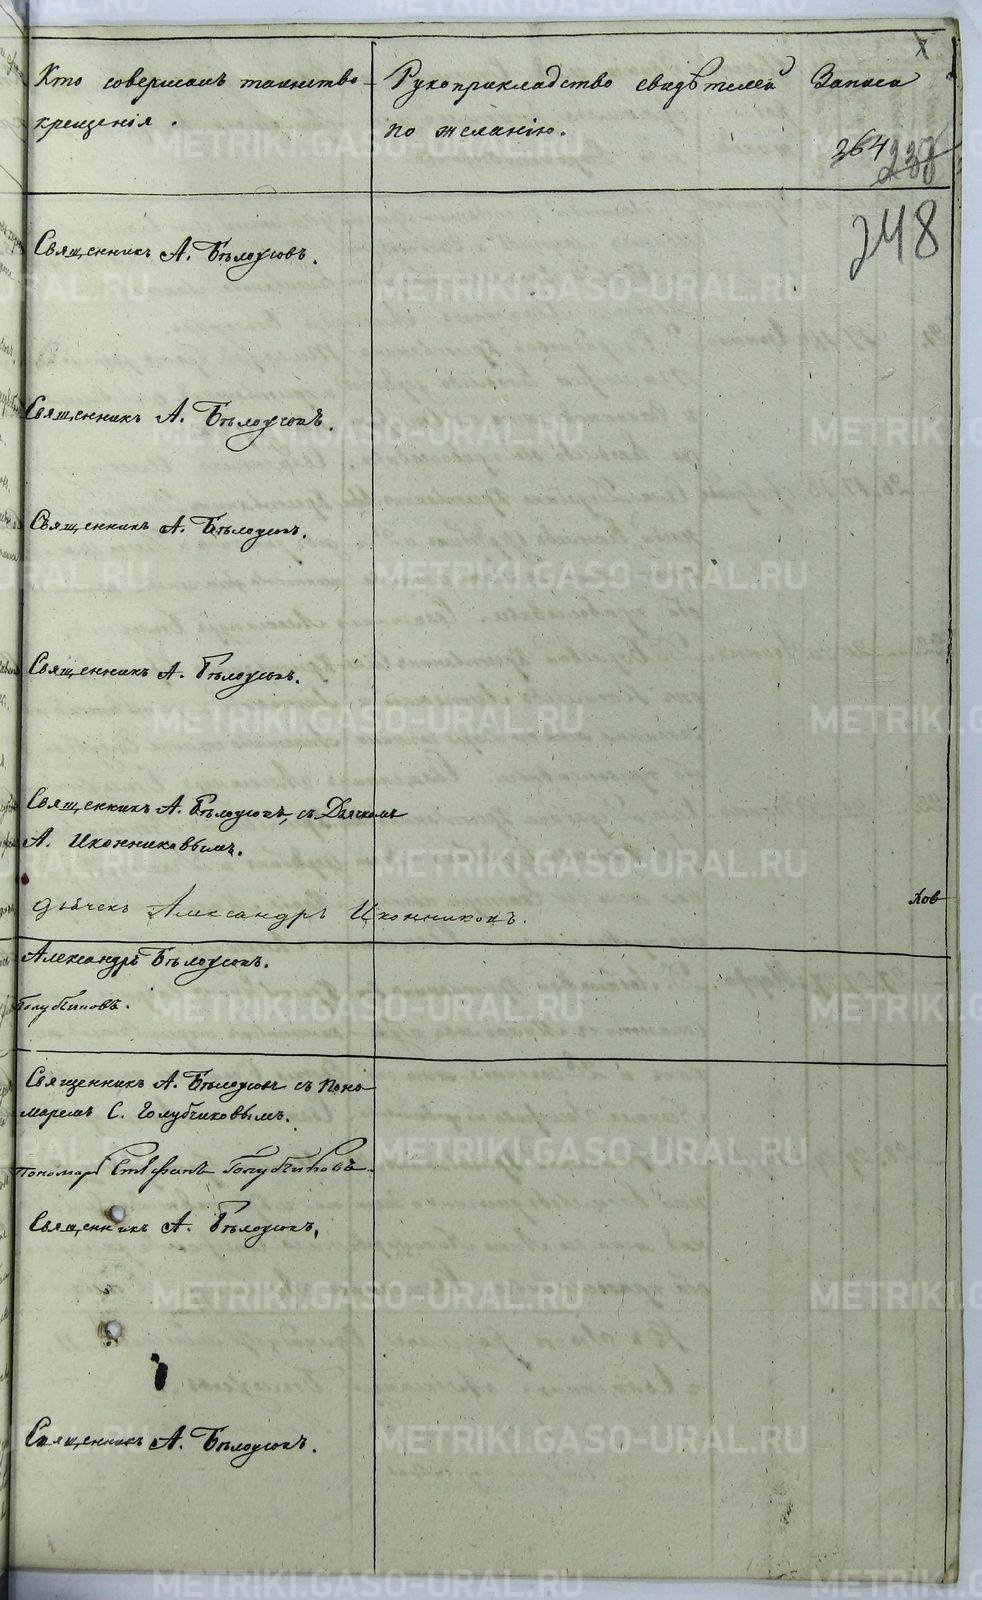 Кто совершалъ таинство
крещенія.
Рукоприкладство свидѣтелей записи
по желанію.
264
248
Священникъ А. Бѣлоусовъ.
Священникъ А. Бѣлоусовъ.
Священникъ А. Бѣлоусовъ.
Священникъ А. Бѣлоусовъ.
Священникъ А. Бѣлоусовъ, съ Дьячкомъ
А. Иконниковымъ.
Дьячекъ Александръ Иконниковъ.
ков
Александръ Бѣлоусовъ.
Голубчиковъ.
Священникъ А. Бѣлоусовъ съ Поно
маремъ С. Голубчиковымъ.
Пономарь Стефанъ Голубчиковъ.
Священникъ А. Бѣлоусовъ.
Священникъ А. Бѣлоусовъ.
METRIKI.GASO-URAL.RU